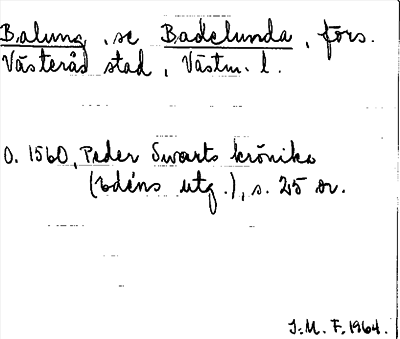 Balung, se Badelunda, förs.
Västerås stad, Västm. l.
O. 1560, Peder Swarts krönika
(Edéns utg.), s. 25 or.
J. M. F. 1964.